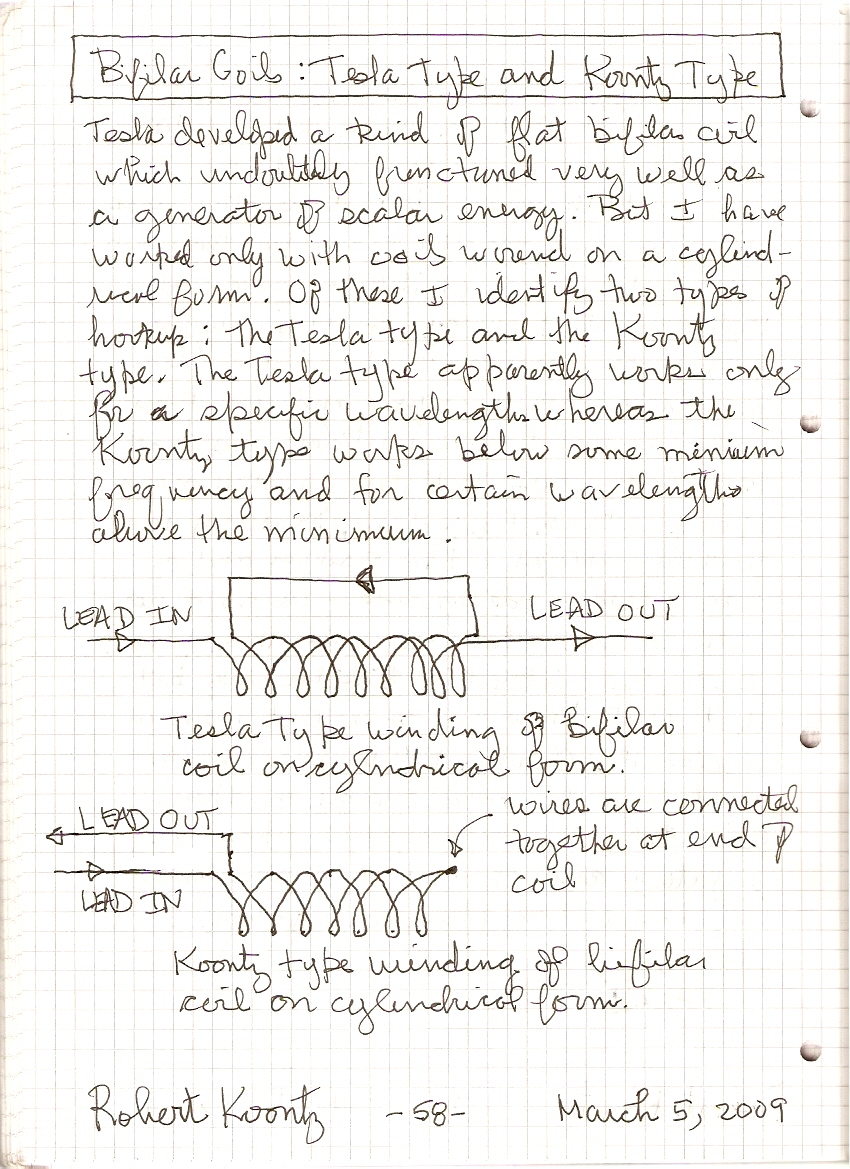 Bifilar Coils: Tesla Type and Koontz Type
Tesla developed a kind of flat bifilar coil
which undoubtedly functioned very well as
a generator of scalar energy. But I have
worked only with coils wound on a cylind-
rical form. Of these I identify two types of
hookup: The Tesla type and the Koontz
type. The Tesla type apparently works only
for a specific wavelengths whereas the
Koontz type works below some minium
frequency and for certain wavelengths
above the minimum.
LEAD IN
LEAD OUT
Tesla Type winding of Bifilar
coil on cylndrical form.
LEAD OUT
wires are connected
together at end of
coil
LEAD IN
Koontz type winding of bifilar
coil on cylindrical form.
Robert Koontz -58- March 5, 2009